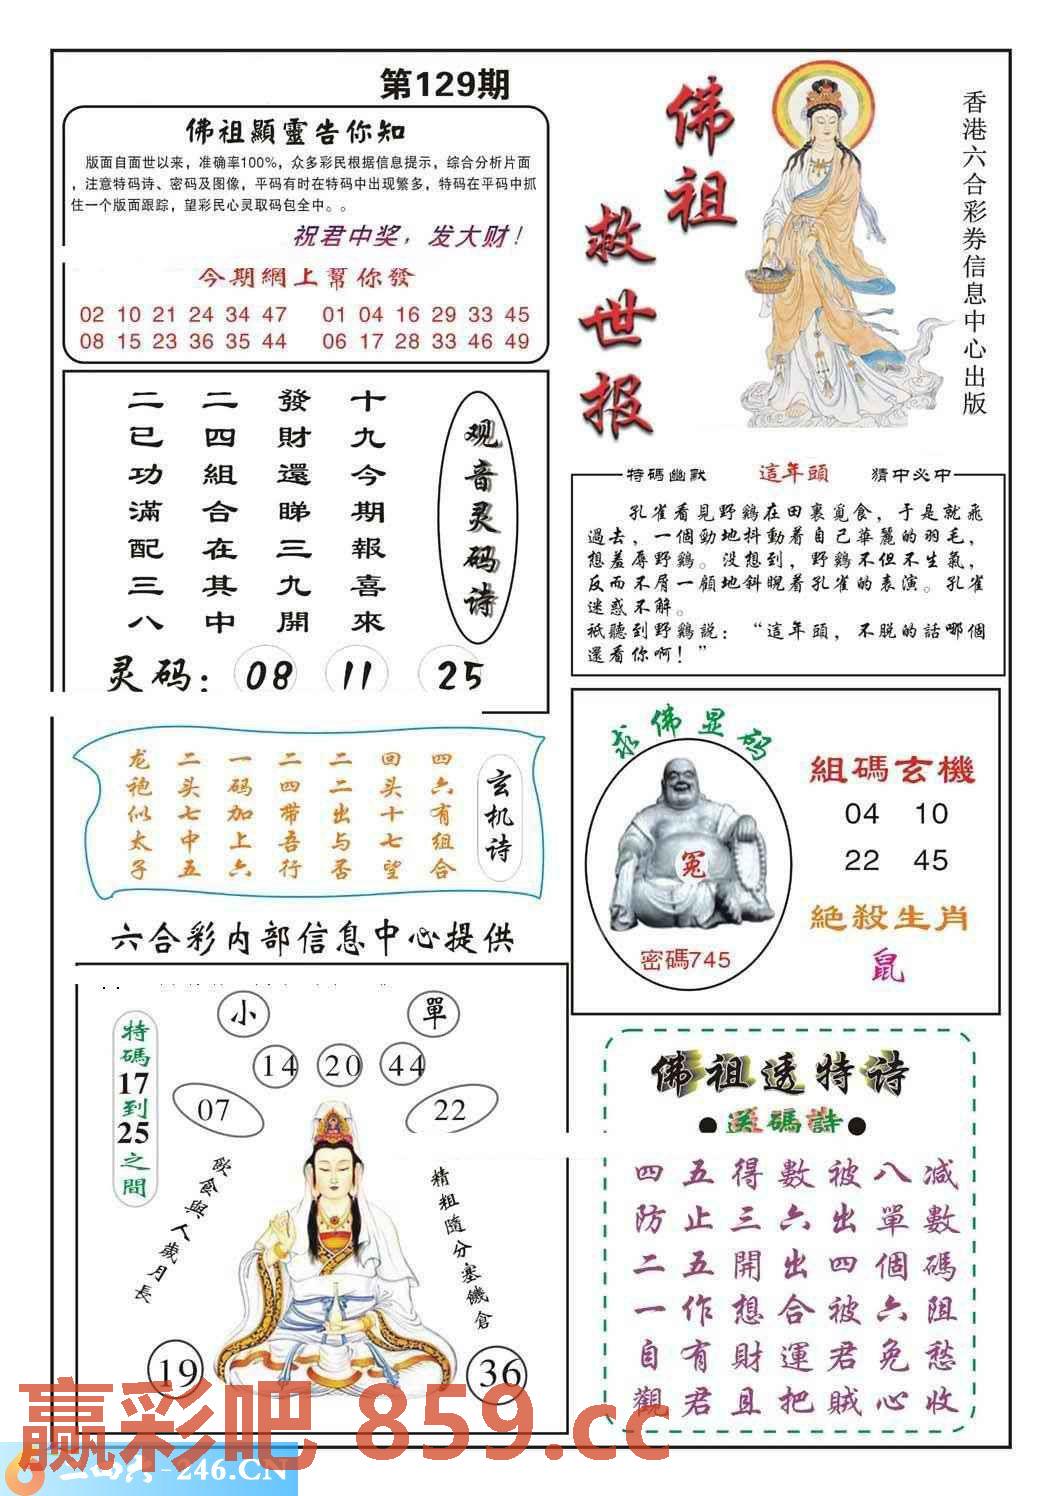 第129期
佛祖顯靈告你知
版面自面世以来，准确率100%，众多彩民根据信息提示，综合分析片面
，注意特码诗、密码及图像，平码有时在特码中出现繁多，特码在平码中抓
住一个版面跟踪，望彩民心灵取码包全中。。
祝君中奖，发大财！
今期網上幫你發
02 10 21 24 34 47 01 04 16 29 33 45
08 15 23 36 35 44 06 17 28 33 46 49
佛祖
救世报
香港六合彩券信息中心出版
观音灵码诗
十九今期報喜來
發財還睇三九開
二四組合在其中
二已功滿配三八
灵码：08 11 25
特碼幽默 這年頭 猜中必中
孔雀看見野鷄在田裏覓食，于是就飛
過去，一個勁地抖動着自己華麗的羽毛，
想羞辱野鷄。没想到，野鷄不但不生氣，
反而不屑一顧地斜睨着孔雀的表演。孔雀
迷惑不解。
祇聽到野鷄説：“這年頭，不脱的話哪個
還看你啊！”
玄机诗
四六有组合
回头十七望
二二出与否
二四带吾行
一码加上六
二头七中五
龙袍似太子
求佛显码
冤
密碼745
組碼玄機
04 10
22 45
絕殺生肖
鼠
六合彩内部信息中心提供
特碼17到25之間
小 單
14 20 44
07 22
飲食與人歲月長
精粗隨分塞饑倉
19 36
佛祖透特诗
●送碼詩●
四五得數被八减
防止三六出單數
二五開出四個碼
一作想合被六阻
自有財運君免愁
觀君且把賊心收
赢彩吧 859.cc
-246.CN